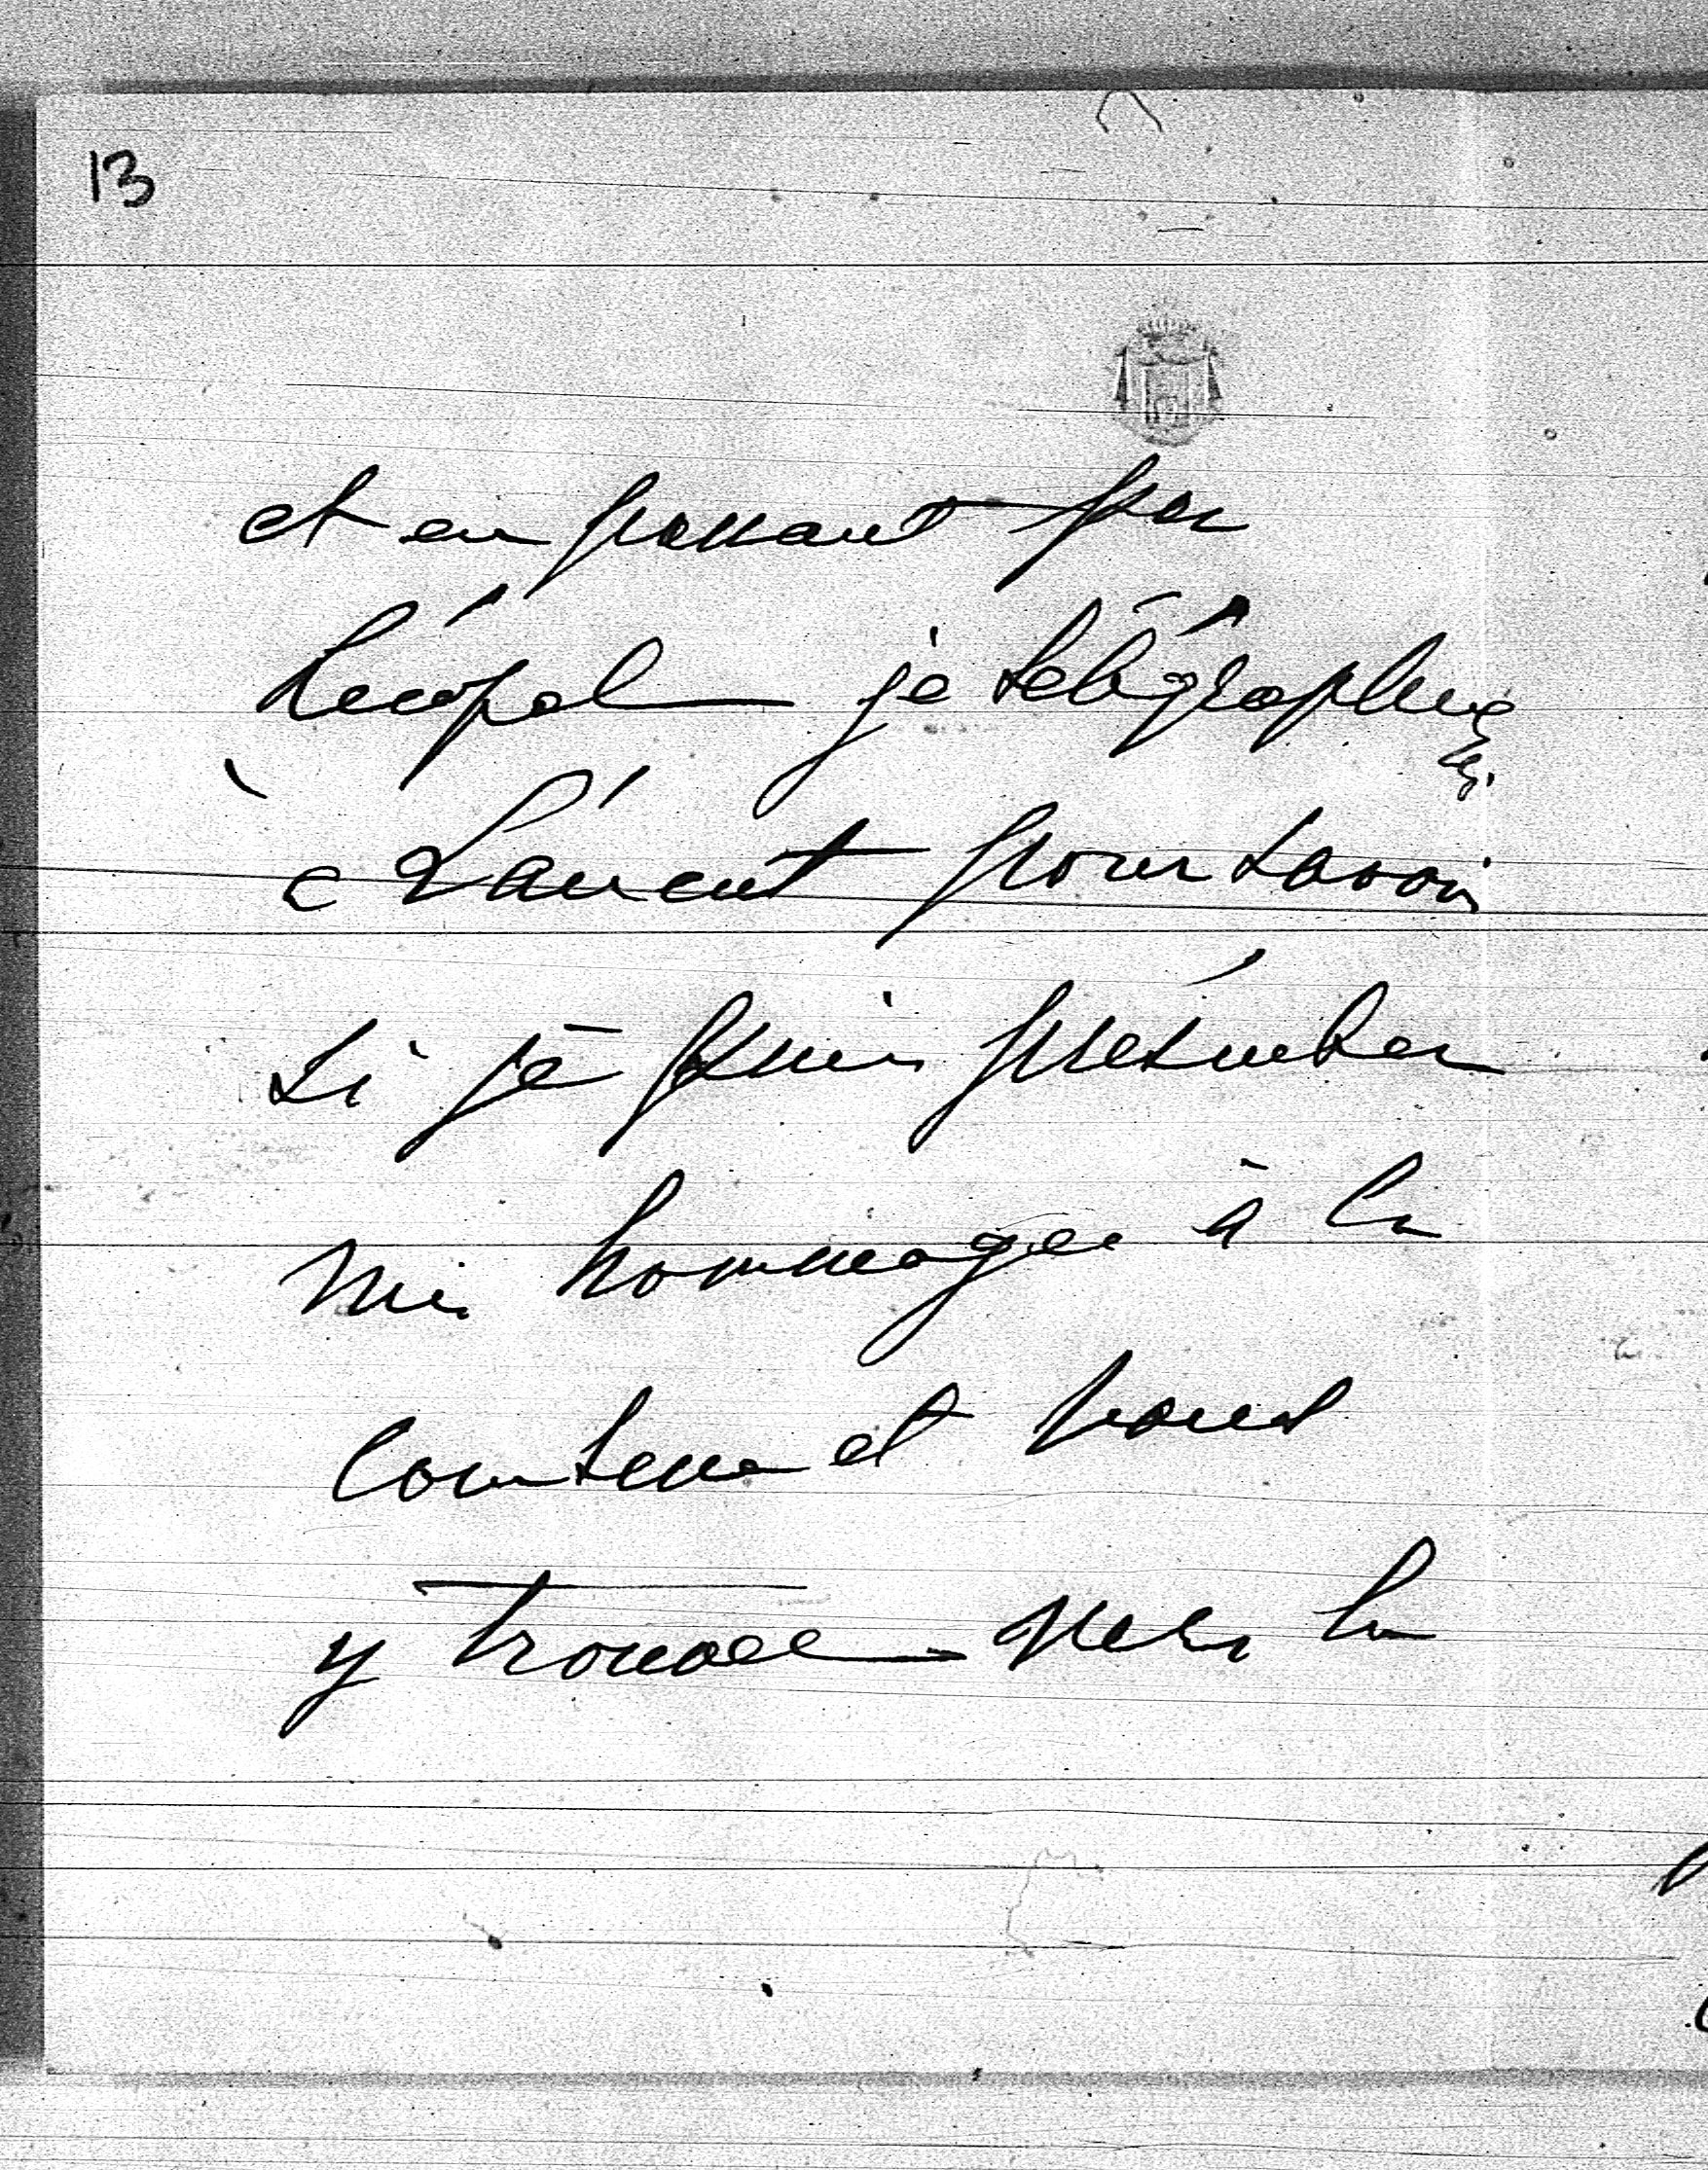 13
et en passant par
Léopol je télégraphierai
à Lancut pour savoir
si je puis présenter
mes hommages à la
Comtesse et vous
y trouver vers la